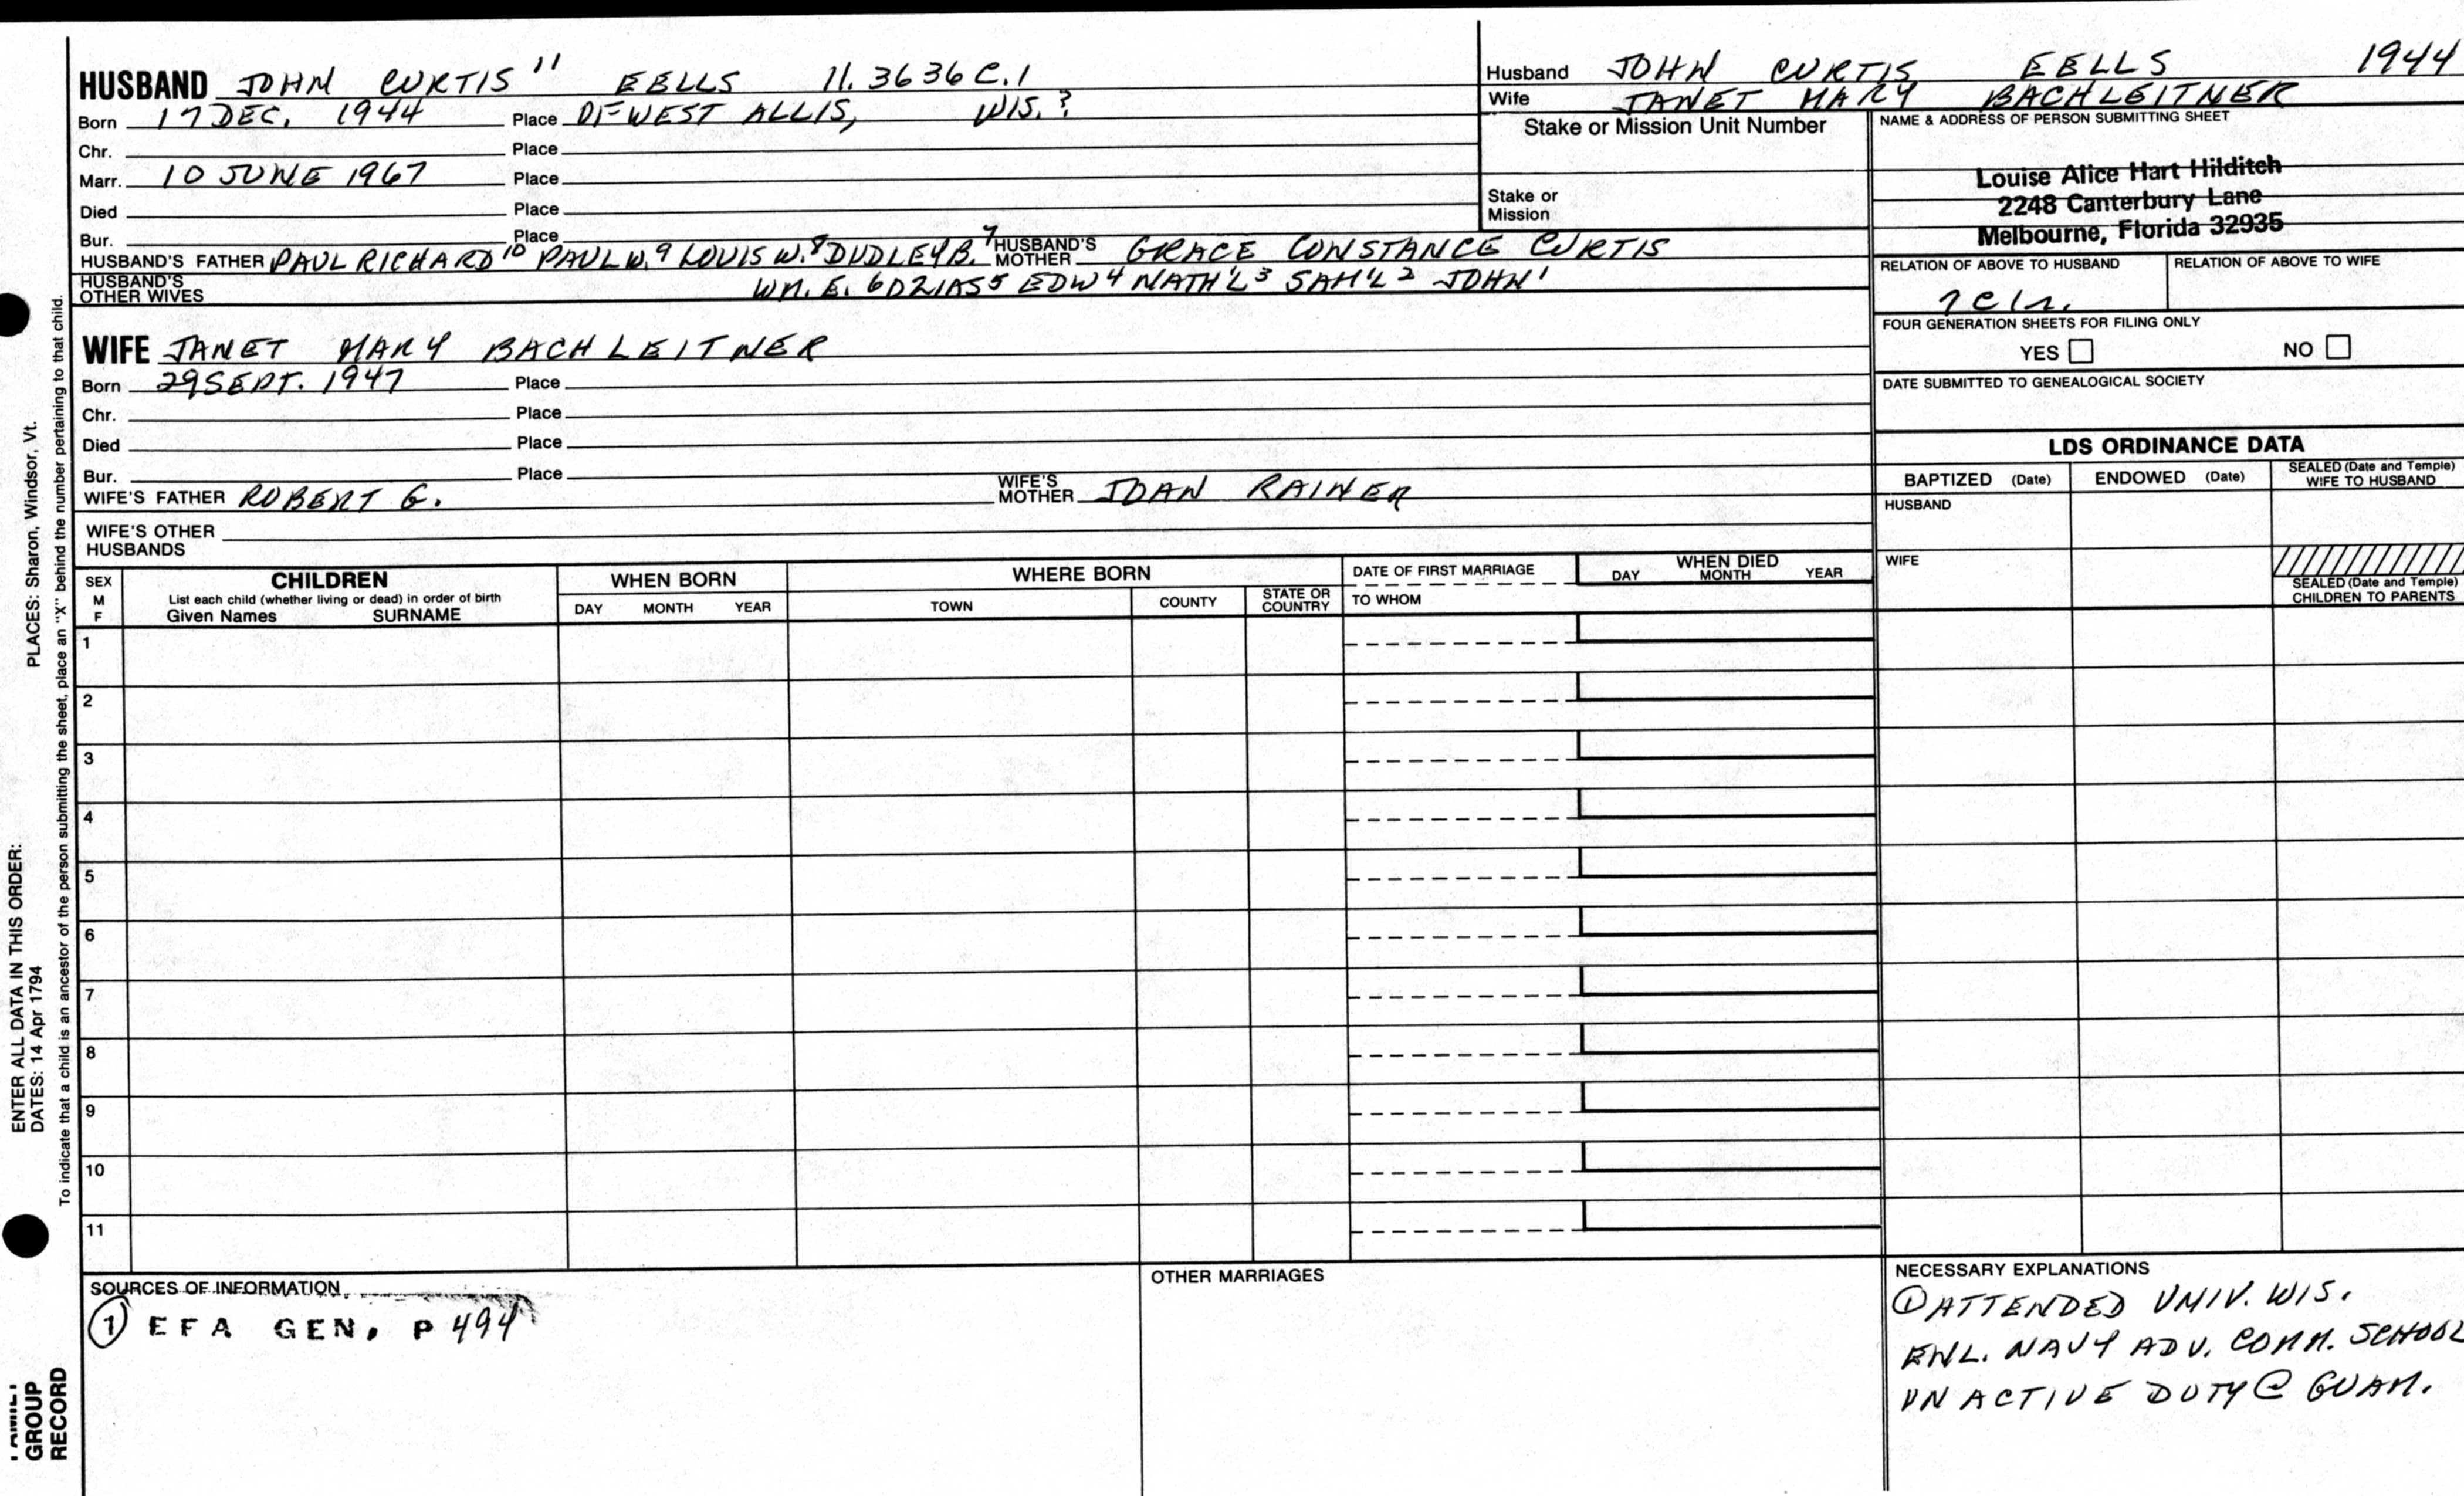 HUSBAND JOHN CURTIS" EELLS 11.3636C.1
Born 17 DEC. 1944 Place OF WEST ALLIS, WIS.?
Chr. Place
Marr. 10 JUNE 1967 Place
Died Place
Bur. Place
HUSBAND'S FATHER PAUL RICHARD10 PAUL W.9 LOUIS W.8 DUDLEY B.7 HUSBAND'S MOTHER GRACE CONSTANCE CURTIS
HUSBAND'S OTHER WIVES WM. E. 6 OZIAS5 EDW4 NATH'L3 SAM'L2 JOHN1
WIFE JANET MARY BACHLEITNER
Born 29 SEPT. 1947 Place
Chr. Place
Died Place
Bur. Place
WIFE'S FATHER ROBERT G. WIFE'S MOTHER JOAN RAINER
WIFE'S OTHER HUSBANDS
Husband JOHN CURTIS EELLS 1944
Wife JANET MARY BACHLEITNER
Stake or Mission Unit Number
Stake or
Mission
NAME & ADDRESS OF PERSON SUBMITTING SHEET
Louise Alice Hart Hilditch
2248 Canterbury Lane
Melbourne, Florida 32935
RELATION OF ABOVE TO HUSBAND RELATION OF ABOVE TO WIFE
FOUR GENERATION SHEETS FOR FILING ONLY
YES NO
DATE SUBMITTED TO GENEALOGICAL SOCIETY
LDS ORDINANCE DATA
BAPTIZED (Date) ENDOWED (Date) SEALED (Date and Temple) WIFE TO HUSBAND
HUSBAND
WIFE
SEALED (Date and Temple)
CHILDREN TO PARENTS
SEX
M
F
CHILDREN
List each child (whether living or dead) in order of birth
Given Names SURNAME
WHEN BORN
DAY MONTH YEAR
WHERE BORN
TOWN COUNTY STATE OR COUNTRY
DATE OF FIRST MARRIAGE
TO WHOM
WHEN DIED
DAY MONTH YEAR
1
2
3
4
5
6
7
8
9
10
11
SOURCES OF INFORMATION
① EFA GEN. P 494
OTHER MARRIAGES
NECESSARY EXPLANATIONS
① ATTENDED UNIV. WIS.
ENL. NAVY ADV. COMM. SCHOOL
ON ACTIVE DUTY @ GUAM.
ENTER ALL DATA IN THIS ORDER:
DATES: 14 Apr 1794 PLACES: Sharon, Windsor, Vt.
To indicate that a child is an ancestor of the person submitting the sheet, place an "X" behind the number pertaining to that child.
FAMILY
GROUP
RECORD